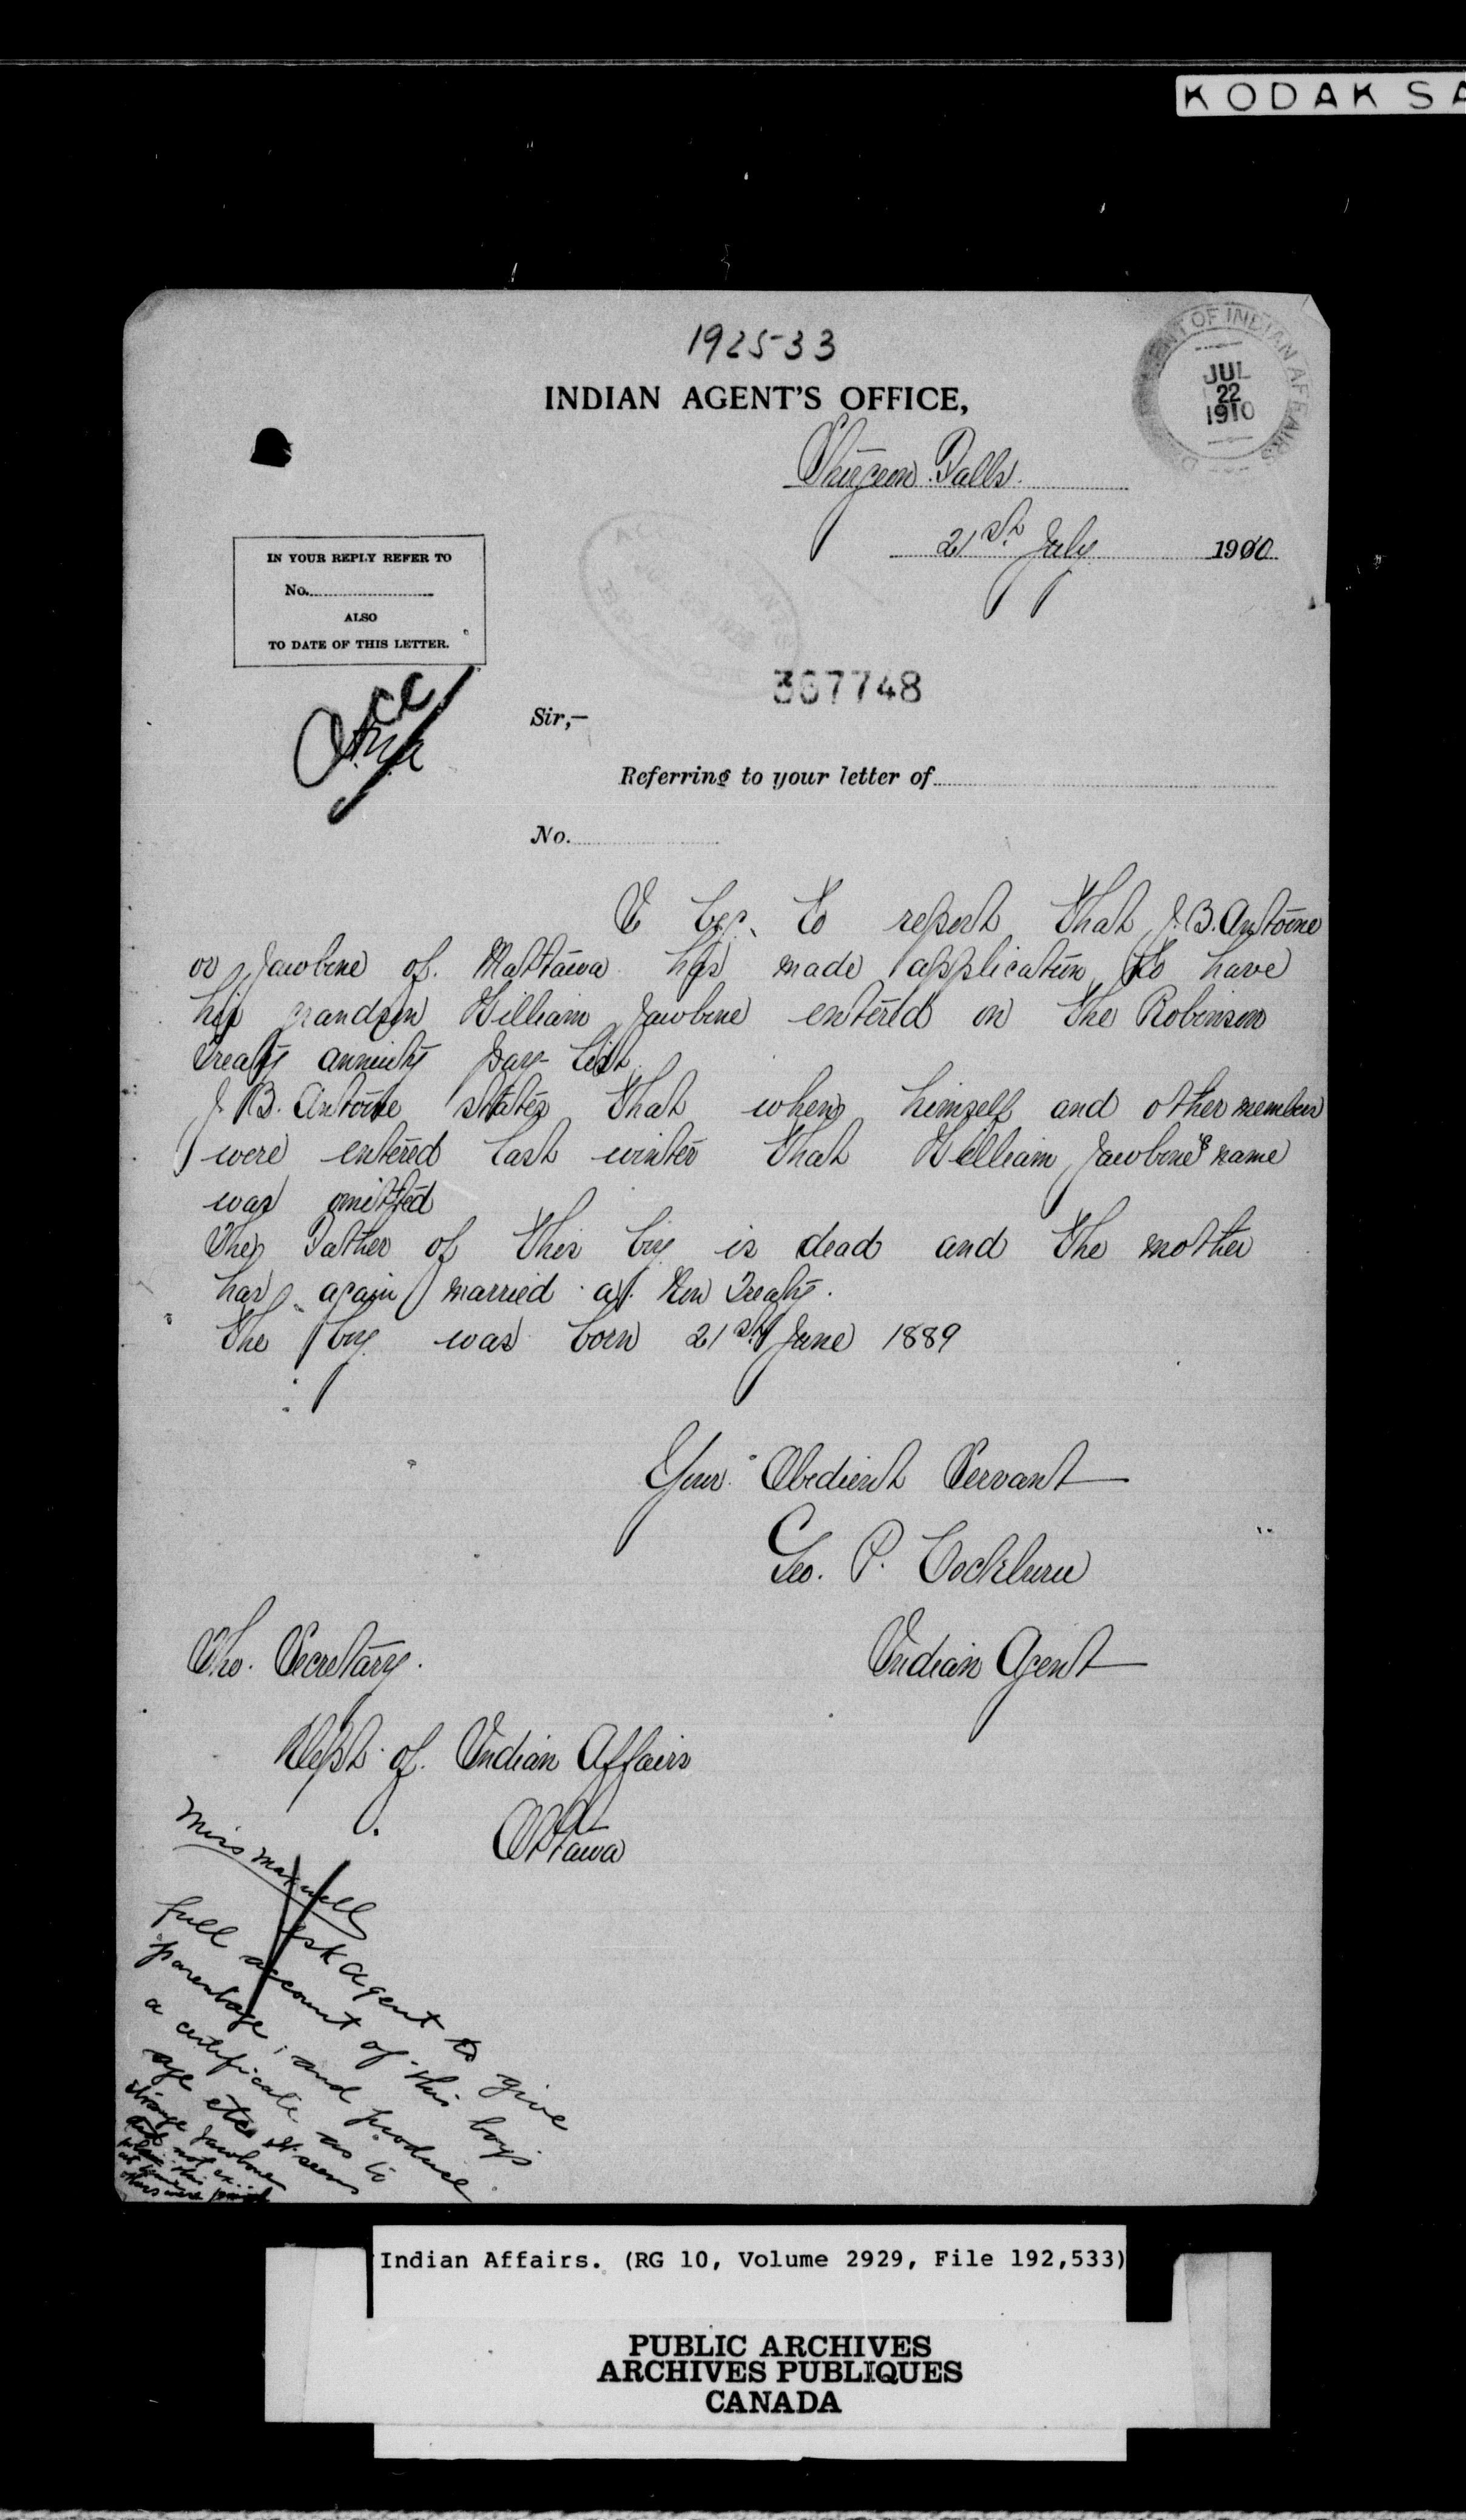 KODAK SA
192533
INDIAN AGENT'S OFFICE,
DEPARTMENT OF INDIAN AFFAIRS
JUL
22
1910
Sturgeon Falls
21st July 1910
IN YOUR REPLY REFER TO
No.
ALSO
TO DATE OF THIS LETTER.
367748
Sir,—
Referring to your letter of
No.
I beg to report that J. B. Antoine
or Jawbone of Mattawa has made application to have
his grandson William Jawbone entered on the Robinson
Treaty annuity pay-list
J. B. Antoine states that when himself and other members
were entered last winter that William Jawbone's name
was omitted
The Father of this boy is dead and the mother
has again married a Non Treaty.
The boy was born 21st June 1889
Your Obedient Servant
Geo. P. Cockburn
Indian Agent
The Secretary.
Dept. of Indian Affairs
Ottawa
Miss Maxwell
Ask Agent to give
full account of this boy's
parentage, and produce
a certificate as to
age etc It seems
strange Jawbone
did not
this
at time
others were
Indian Affairs. (RG 10, Volume 2929, File 192,533)
PUBLIC ARCHIVES
ARCHIVES PUBLIQUES
CANADA